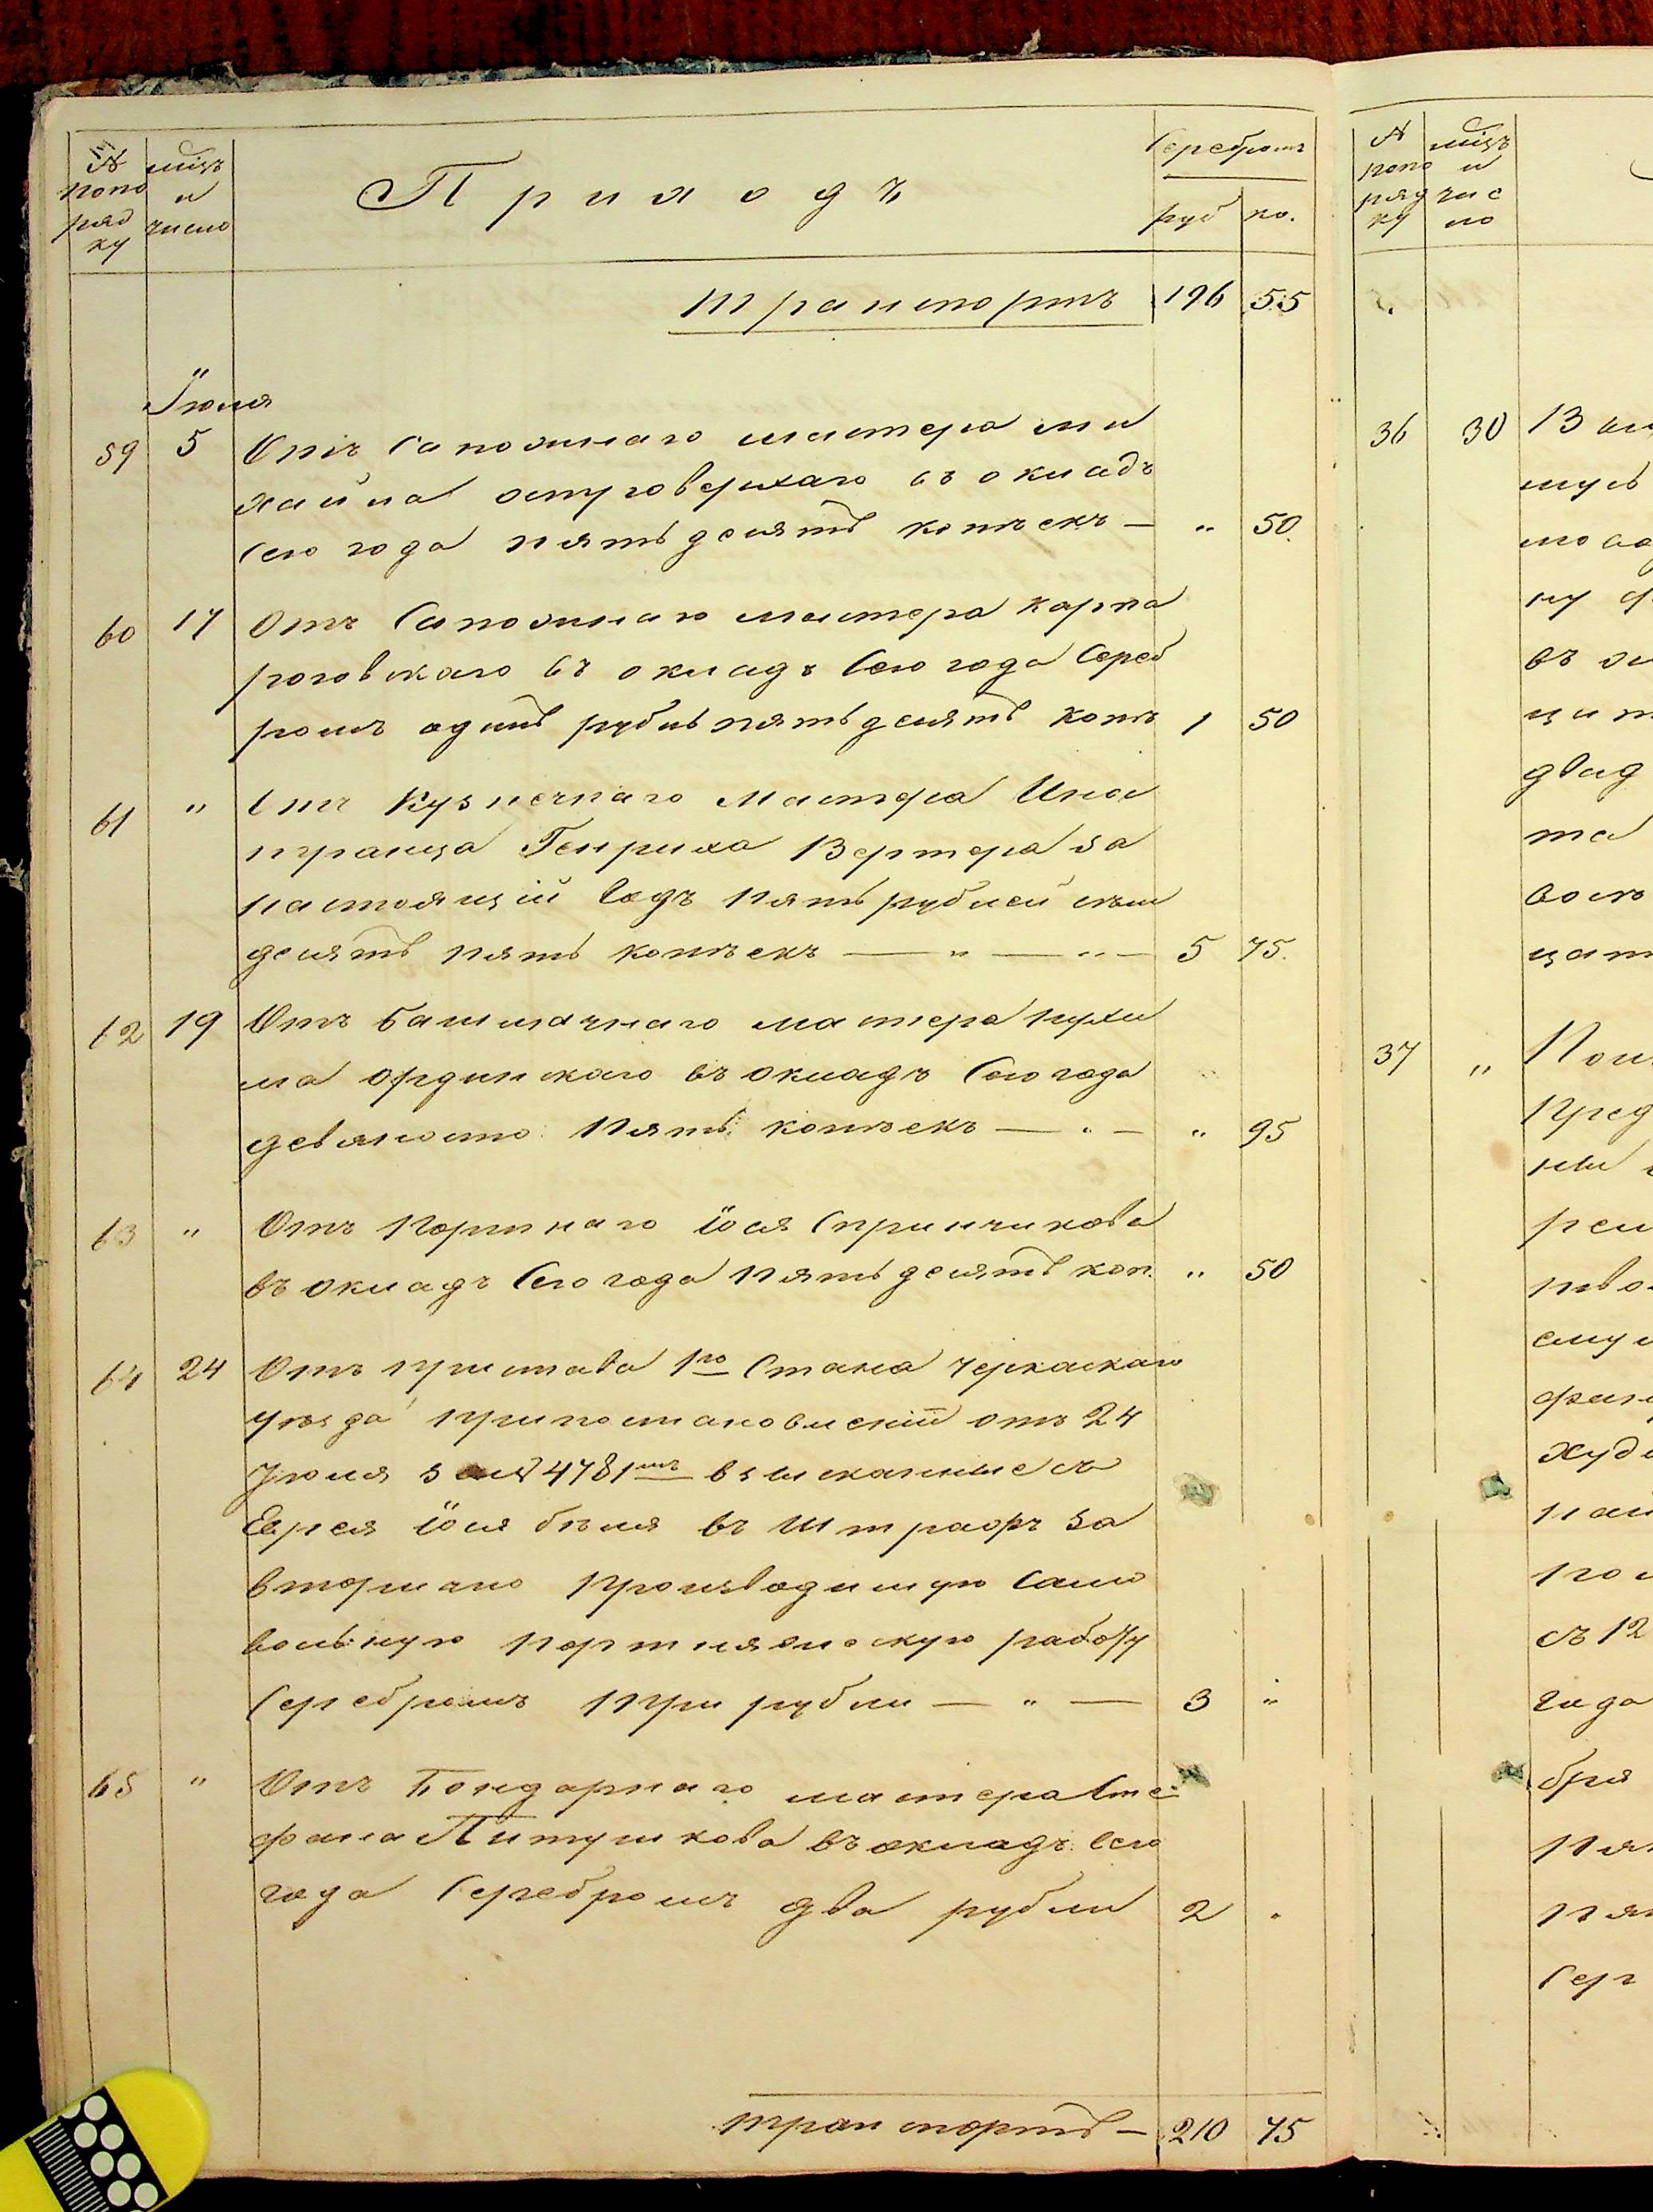 № попо ряд ку
мцъ и число
Приходъ
Серебромъ
руб ко.
Транспортъ 196 55
Іюля
59 5 Отъ Сапожнаго мастера ми
хайла островерхаго въ окладъ
сего года пятьдесятъ копѣекъ — " 50.
60 17 Отъ Сапожнаго мастера карпа
роговскаго въ окладъ сего года Сереб
ромъ одинъ рубль пятьдесятъ копѣ 1 50
61 " Отъ Кузнечнаго мастера Ино
странца Генриха Вертера за
настоящій годъ пять рублей семь
десятъ пять копѣекъ — " — " — 5 75.
62 19 Отъ башмачнаго мастера
ма ординскаго въ окладъ сего года
девяносто пять копѣекъ — " — " 95
63 " Отъ Портнаго Іося Спринчикова
въ окладъ сего года пятьдесятъ коп. " 50
64 24 Отъ пристава 1го Стана Черкаскаго
уѣзда при постановленіи отъ 24
Іюля за № 4781мъ взысканные съ
Еврея Іося бѣля въ штрафъ за
вторично производимую само
вольную портняжескую работу
Серебромъ три рубли — " — 3 "
65 " Отъ Бондарнаго мастера Сте
фана Питушкова въ окладъ сего
года Серебромъ два рубли 2 "
транспортъ — 210 75
№ попо ряд ку
мцъ и чис ло
36 30
37 "
двад
та
цат
Пред
съ 12
года
бря
Сер